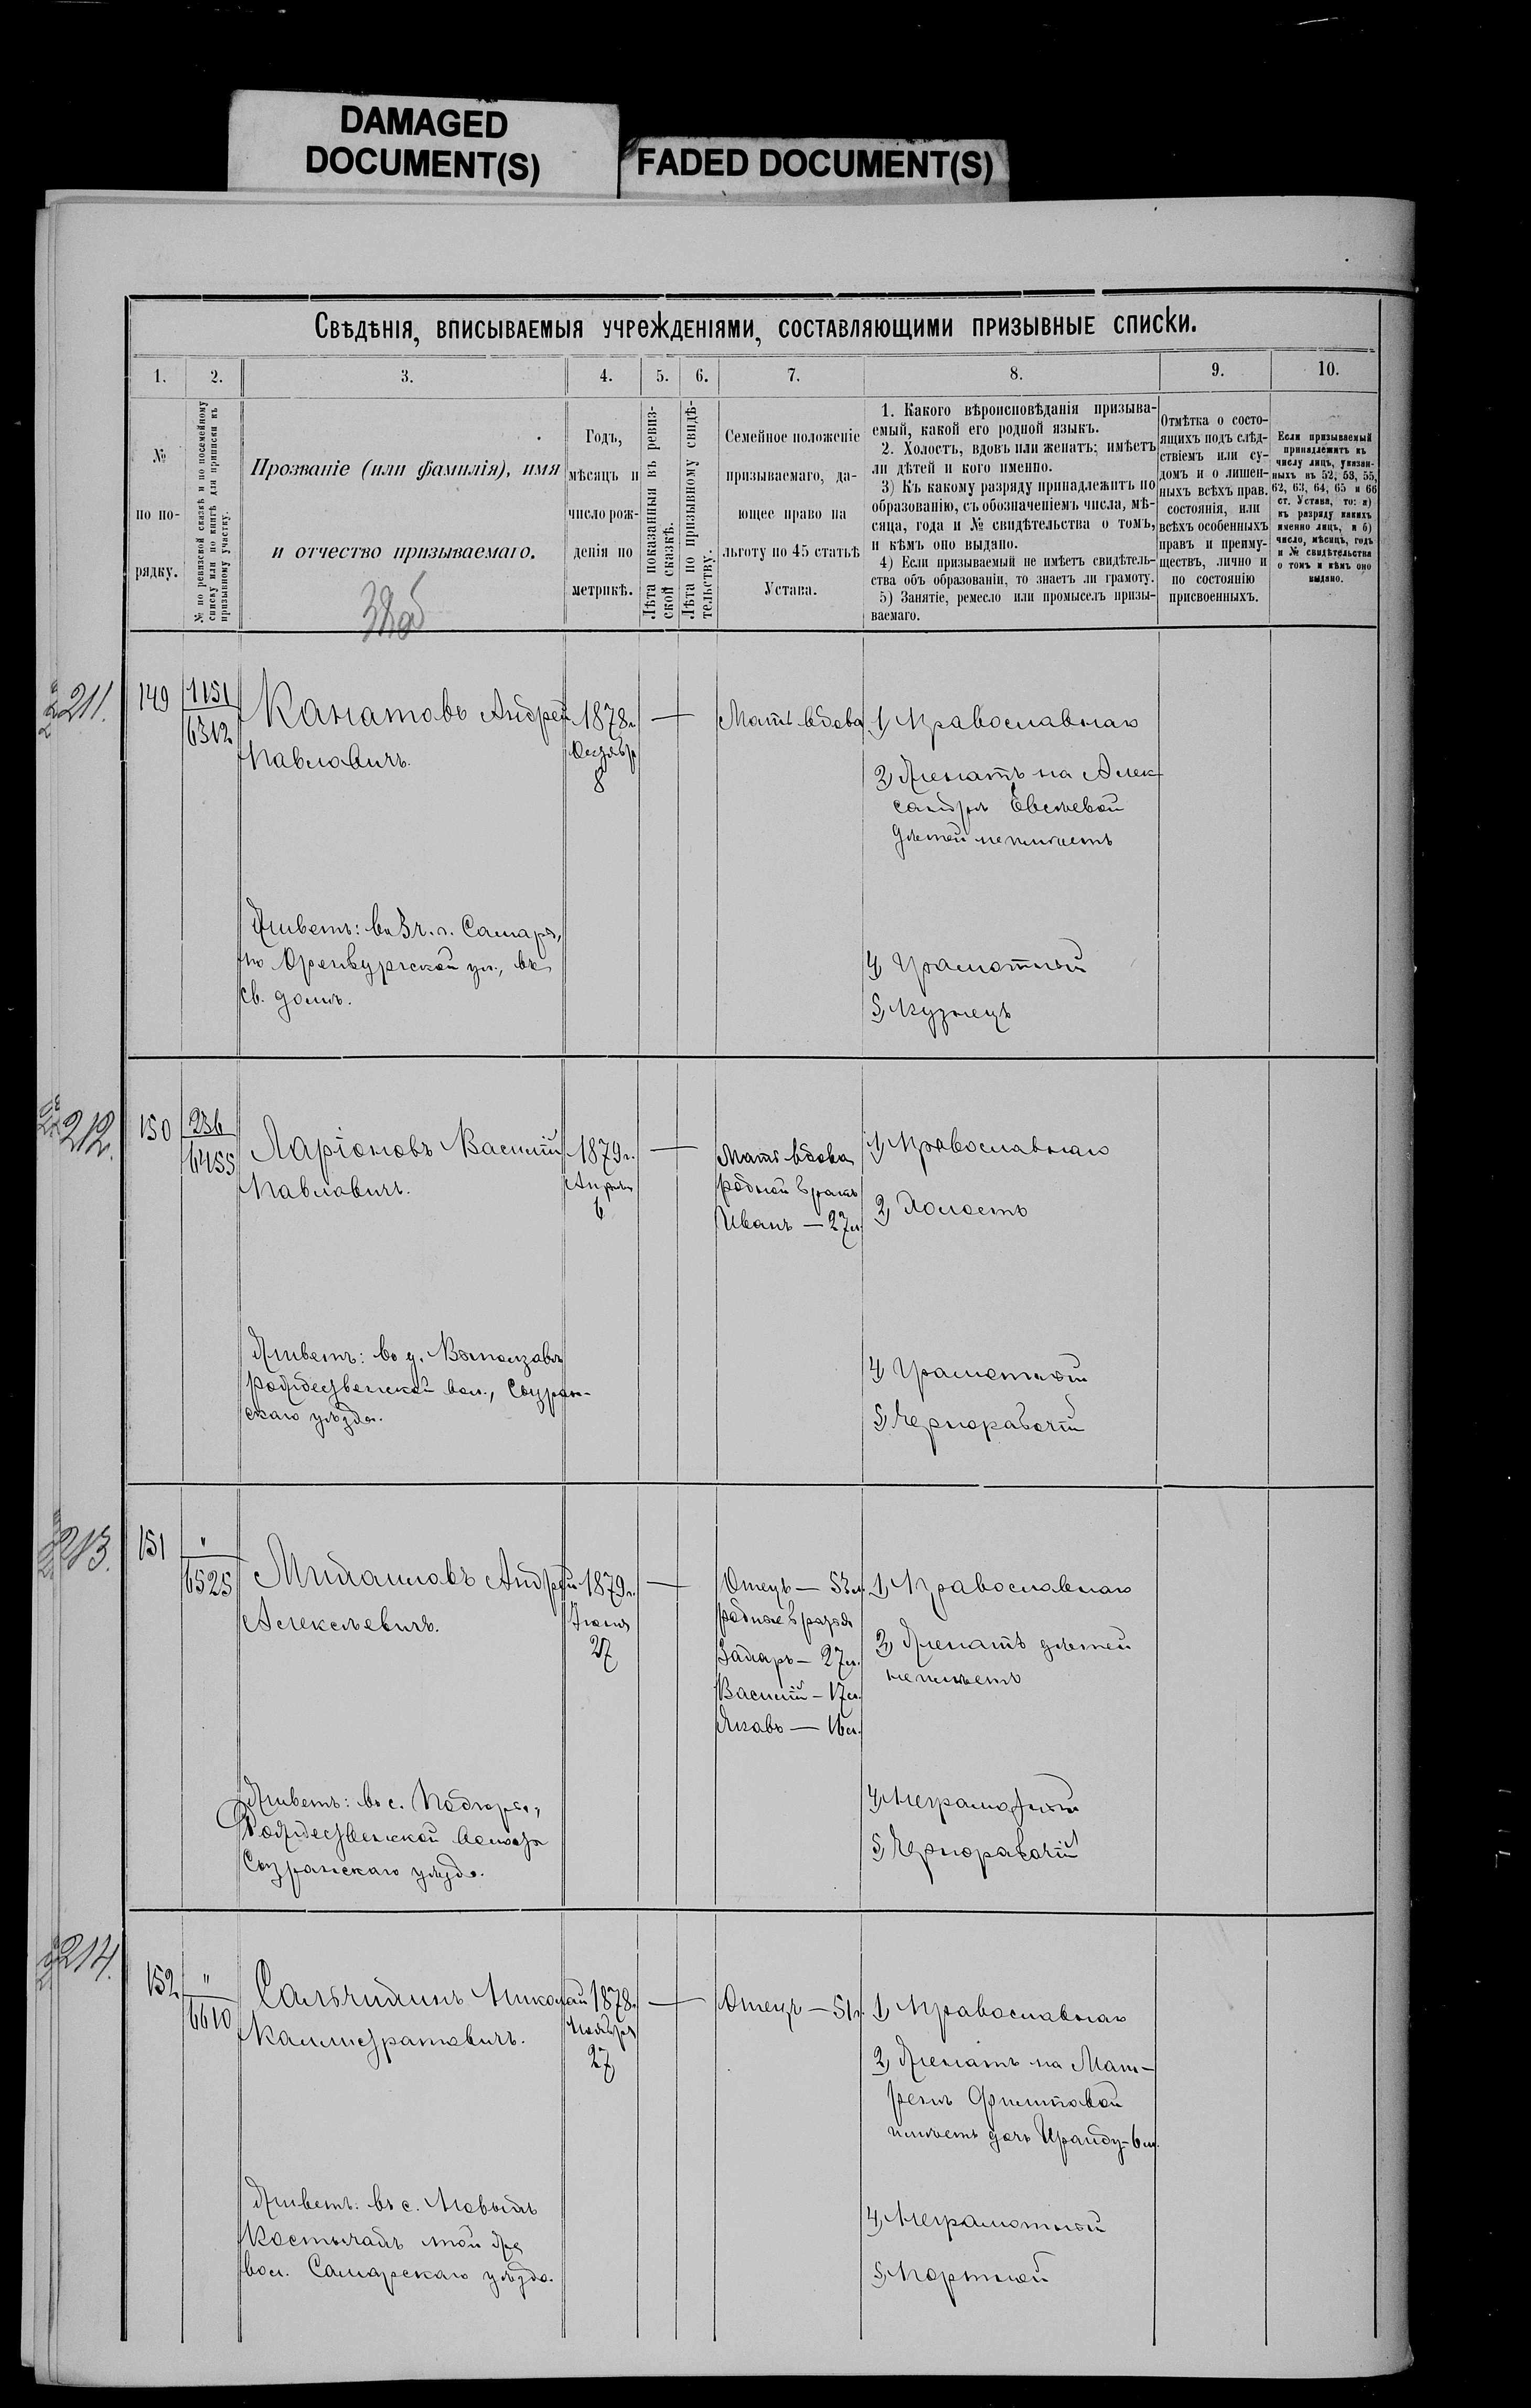 DAMAGED
DOCUMENT(S)
FADED DOCUMENT(S)
Свѣдѣнія, вписываемыя учрежденіями, составляющими призывные списки.
1. 2. 3. 4. 5. 6. 7. 8. 9. 10.
№
по по-
рядку.
№ по ревизской сказкѣ и по посемейному
списку или по книгѣ для приписки къ
призывному участку.
Прозваніе (или фамилія), имя
и отчество призываемаго.
Годъ,
мѣсяцъ и
число рож-
денія по
метрикѣ.
Лѣта показанныя въ ревиз-
ской сказкѣ.
Лѣта по призывному свидѣ-
тельству.
Семейное положеніе
призываемаго, да-
ющее право на
льготу по 45 статьѣ
Устава.
1. Какого вѣроисповѣданія призыва-
емый, какой его родной языкъ.
2. Холостъ, вдовъ или женатъ; имѣетъ
ли дѣтей и кого именно.
3) Къ какому разряду принадлежитъ по
образованію, съ обозначеніемъ числа, мѣ-
сяца, года и № свидѣтельства о томъ,
и кѣмъ оно выдано.
4) Если призываемый не имѣетъ свидѣтель-
ства объ образованіи, то знаетъ ли грамоту.
5) Занятіе, ремесло или промыселъ призы-
ваемаго.
Отмѣтка о состо-
ящихъ подъ слѣд-
ствіемъ или су-
домъ и о лишен-
ныхъ всѣхъ прав.
состоянія, или
всѣхъ особенныхъ
правъ и преиму-
ществъ, лично и
по состоянію
присвоенныхъ.
Если призываемый
принадлежитъ къ
числу лицъ, указан-
ныхъ въ 52, 53, 55,
62, 63, 64, 65 и 66
ст. Устава, то: а)
къ разряду какихъ
именно лицъ, и б)
число, мѣсяцъ, годъ
и № свидѣтельства
о томъ и кѣмъ оно
выдано.
211.
149
1151
6312
Канатовъ Андрей
Павловичъ.
1878г.
Октября
8
—
Мать вдова
1) Православнаго
2) Женатъ на Алек
сандрѣ Евсѣевой
дѣтей не имѣетъ
Живетъ: въ 3 ч. г. Самары,
по Оренбургской ул., въ
св. домѣ.
4) Грамотный
5) Кузнецъ
212.
150
236
6455
Ларіоновъ Василій
Павловичъ.
1879г.
Апрѣля
6
—
Мать вдова
родной братъ
Иванъ — 27л.
1) Православнаго
2) Холостъ
Живетъ: въ д.
Рождественской вол., Сызран-
скаго уѣзда.
4) Грамотный
5) Чернорабочій
213.
151
"
6525
Михаиловъ Андрей
Алексѣевичъ.
1879г.
Іюня
27
—
Отецъ — 53л.
родные братья
Захаръ — 27л.
Василій — 17л.
Яковъ — 16л.
1) Православнаго
2) Женатъ дѣтей
не имѣетъ
Живетъ: въ с. Подгоры,
Рождественской волости
Сызранскаго уѣзда.
4) Неграмотный
5) Чернорабочій
214.
152
"
6610
Сальчихинъ Николай
Каллистратовичъ.
1878г.
Ноября
27
—
Отецъ — 51л.
1) Православнаго
2) Женатъ на Мат-
ренѣ Филиповой
имѣетъ дочь Ираиду — 6 м.
Живетъ: въ с. Новыхъ
Костычахъ той же
вол. Самарскаго уѣзда.
4) Неграмотный
5) Портной